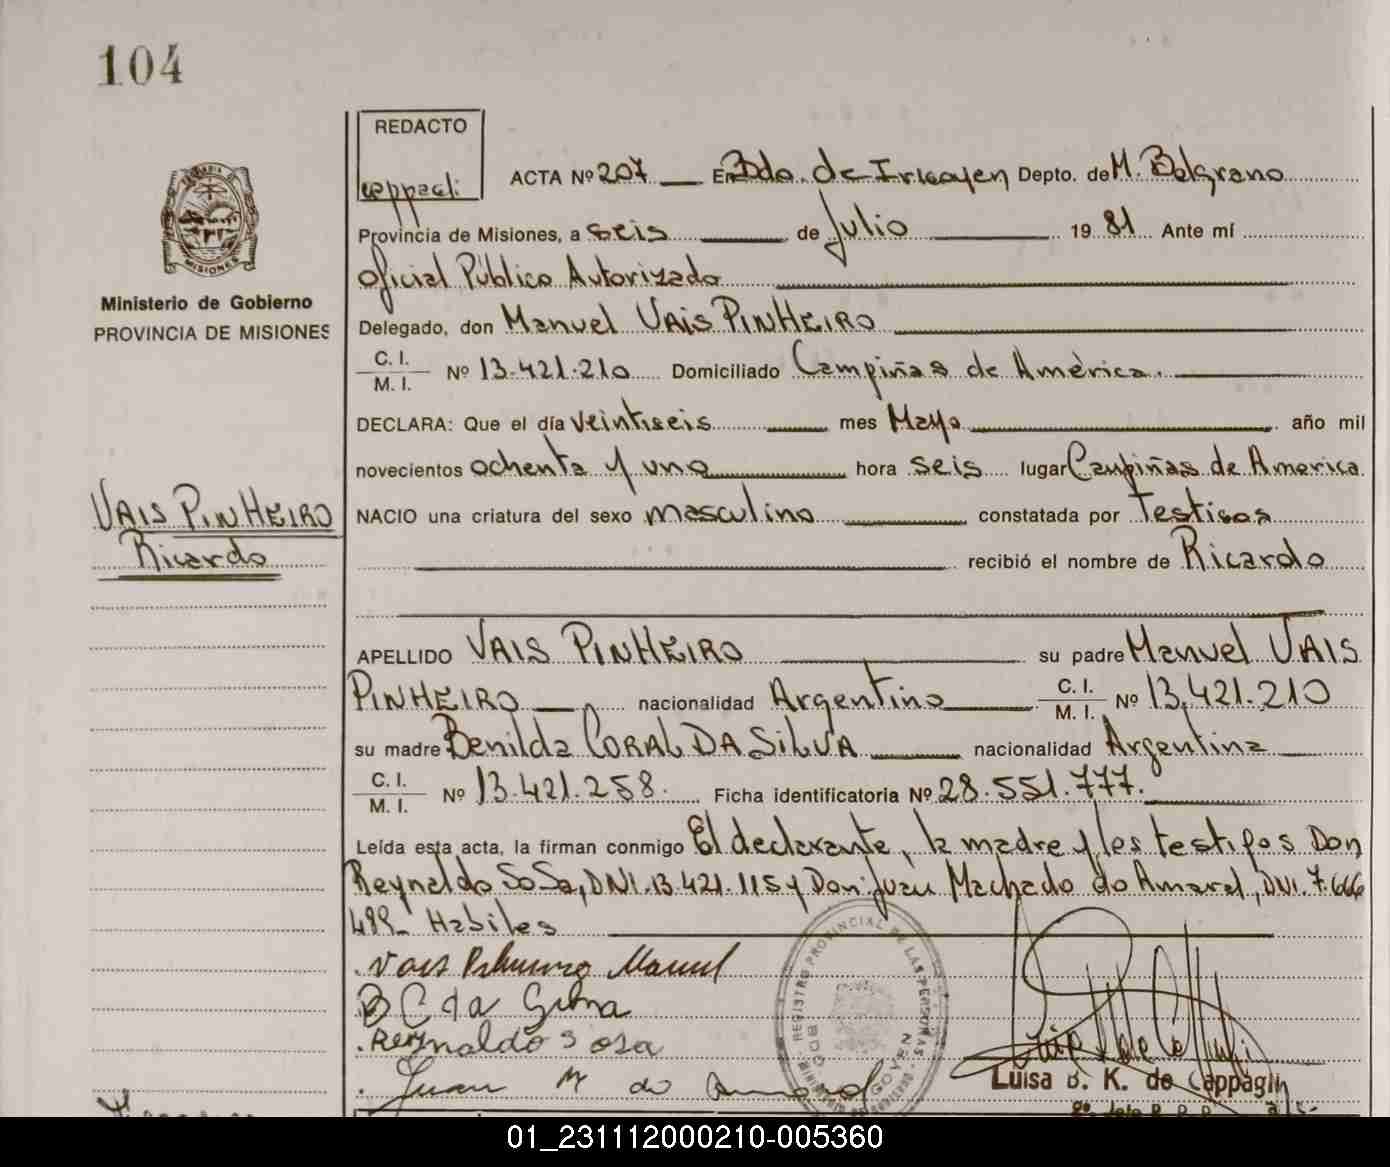 104
REDACTO
Cappagli
ACTA Nº 207 En Bdo. de Irigoyen Depto. de M. Belgrano
Provincia de Misiones, a seis de Julio 19 81 Ante mí
Oficial Público Autorizado
Delegado, don Manuel VAIS PINHEIRO
C. I.
M. I. Nº 13.421.210 Domiciliado Campiñas de América.
DECLARA: Que el día veintiseis mes Mayo año mil
novecientos ochenta y uno hora seis lugar Campiñas de America
NACIO una criatura del sexo masculino constatada por Testigos
recibió el nombre de Ricardo
APELLIDO VAIS PINHEIRO su padre Manuel VAIS
PINHEIRO nacionalidad Argentino C. I.
M. I. Nº 13.421.210
su madre Benilda CORAL DA SILVA nacionalidad Argentina
C. I.
M. I. Nº 13.421.258. Ficha identificatoria Nº 28.551.777.
Leída esta acta, la firman conmigo El declarante, la madre y los testigos Don
Reynaldo Sosa, DNI. 13.421.115 y Don Juan Machado do Amaral, DNI. 7.666
499_ Habiles
Vais Pinheiro Manuel
B C da Silva
Reynaldo Sosa
Juan M do Amaral
REGISTRO PROVINCIAL DE LAS PERSONAS
Luisa B. K. de Cappagli
MISIONES
Ministerio de Gobierno
PROVINCIA DE MISIONES
VAIS PINHEIRO
Ricardo
01_231112000210-005360